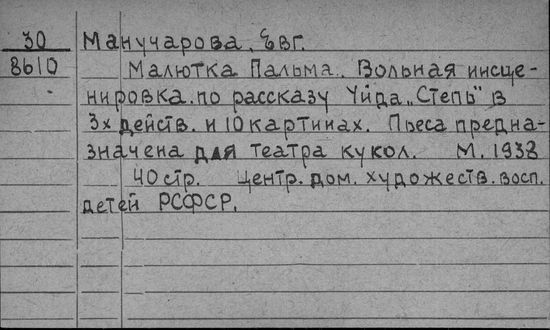 30 Манучарова, Евг.
8610 Малютка Пальма. Вольная инсце-
нировка. по рассказу Уйда „Степь" в
3х действ. и 10 картинах. Пьеса предна-
значена для театра кукол. М. 1938
40 стр. Центр. дом. художеств. восп.
детей РСФСР.